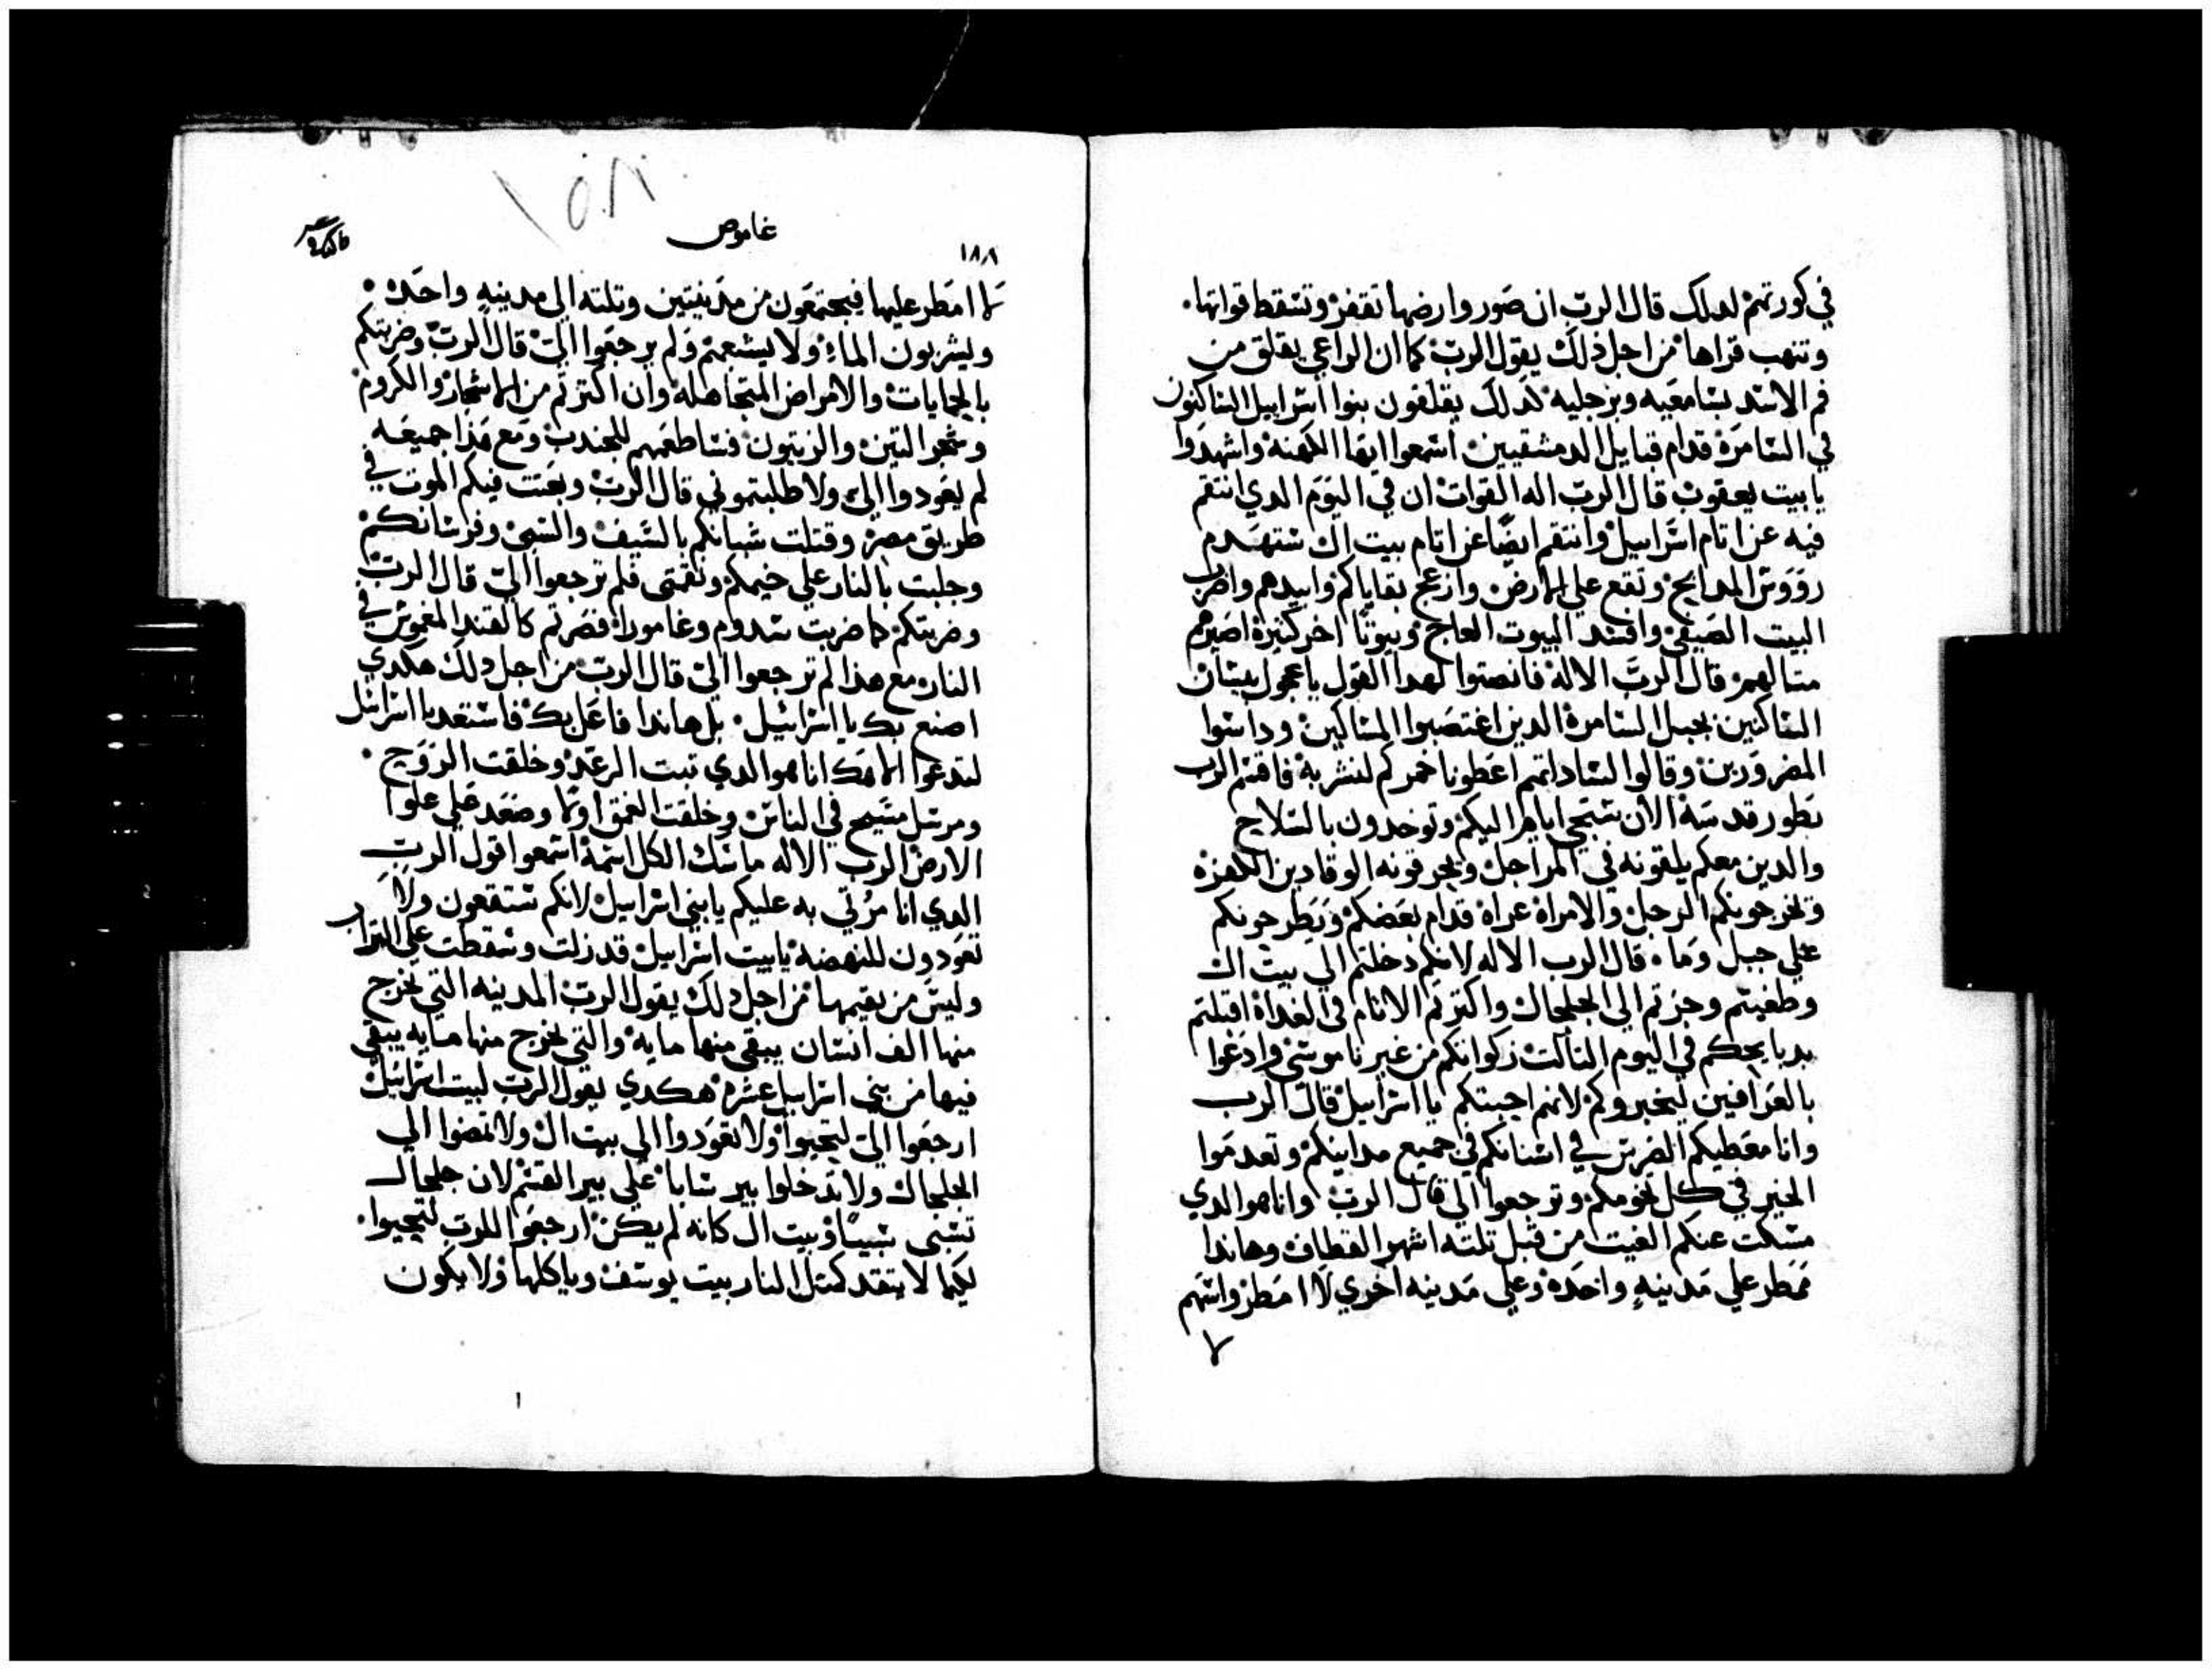 في كورتهم لدلك قال الرب ان صور وارضها تقفر وتسقط قواتها.
وتنهب قراها من اجل ذلك يقول الرب كما ان الراعي يقلق من
فم الاسد بسامعيه وبرجليه كدلك يقلقون بنوا اسراييل الساكنون
في السامرة قدام قبايل الدمشقيين اسمعوا ايها الكهنه واشهدوا
يا بيت يعقوب قال الرب اله القوات ان في اليوم الدي انتقم
فيه عن اتام اسراييل وانتقم ايضا عن اتام بيت ال ستهدم
رووس المدابح وتقع علي الارض وازعج بقاياكم وابيدهم واضرب
البيت الصيفي وافسد البيوت العاج وبيوتا اخر كتيرة اصيرهم
متالهم قال الرب الاله فانصتوا لهدا القول يا عجول بيسان
الساكنين بجبل السامرة الدين اغتصبوا المساكين وداسوا
المضرورين وقالوا لساداتهم اعطونا خمركم لنشربه فاقسم الرب
بطور قدسه الان ستجي اياما اليكم وتوخدون بالسلاح
والدين معكم يلقونه في المراجل ويحرقونه الوقادين الكفرة
وتخرجونكم الرجل والامراة عراه قدام بعضكم ويطرحونكم
علي جبل وما. قال الرب الاله لانكم دخلتم الي بيت ال
وطغيتم وجزتم الي الجلجال واكترتم الاتام في الغداة اقبلتم
بدبايحكم في اليوم التالت زكواتكم من غير ناموسي وادعوا
بالعرافين ليخبروكم لانهم اجبتكم يا اسراييل قال الرب
وانا معطيكم الضرس في اسنانكم في جميع مداينكم وتعدموا
الخبز في كل تخومكم وترجعوا الي قال الرب وانا هو الدي
مسكت عنكم الغيت من قبل تلته اشهر القطاف وهاندا
ممطر علي مدينه واحده وعلي مدينه اخري لا امطر واسهم
غاموص
١٨٨
لا امطر عليها فيجتمعون من مدينتين وتلته الي مدينه واحده.
ويشربون الماء ولا يشبعهم ولم يرجعوا الي قال الرب وضربتكم
بالجمايات والامراض المتجاهله وان اكترتم من الاشجار والكروم
وشجر التين والزيتون فساطعمهم للجندب ومع هذا جميعه
لم يعودوا الي ولا طلبتموني قال الرب وبعتت فيكم الموت في
طريق مصر وقتلت شبانكم بالسيف والسبي وفرسانكم
وجلبت بالنار علي خيمكم ونقمتي فلم ترجعوا الي قال الرب
وضربتكم كما ضربت سدوم وغامورا فصرتم كالقند المغموس في
النار مع هدا لم ترجعوا الي قال الرب من اجل دلك هكدي
اصنع بك يا اسرائيل. بل هاندا فاعل بك فاستعد يا اسرائيل
لتدعوا الاهك انا هو الدي تبت الرعد وخلقت الروح.
ومرسل مسيح في الناس وخلقت العمق اونا وصعد علي علوا
الارض الرب الاله ماسك الكل اسمه اسمعوا قول الرب
الدي انا مرتي به عليكم يا بني اسراييل لانكم ستقعون ولا
تعودون للنهضه يا بيت اسراييل قد زلت وسقطت علي التراب
وليس من يقيمها من اجل دلك يقول الرب المدينه التي تخرج
منها الف انسان يبقي منها مايه والتي تخرج منها مايه يبقي
فيها من بني اسراييل عشرة هكدي يقول الرب لبيت اسرائيل
ارجعوا الي لتحيوا ولا تعودوا الي بيت ال ولا تمضوا الي
الجلجال ولا تدخلوا بير سابا علي بير القسم لان جلجال
تسبي سبيا وبيت ال كانه لم يكن ارجعوا للرب لتحيوا.
لكيما لا يتقد كمتل النار بيت يوسف وياكلها ولا يكون